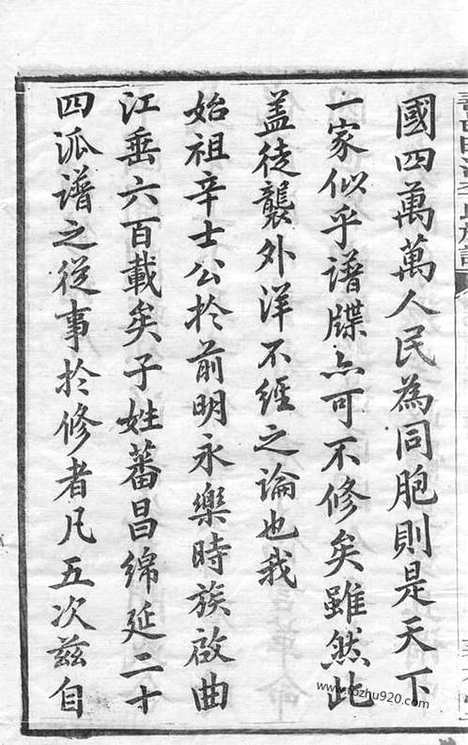 國四萬萬人民為同胞則是天下
一家似乎譜牒亦可不修矣雖然此
蓋徒襲外洋不經之論也我
始祖辛士公於前明永樂時族啟曲
江垂六百載矣子姓蕃昌綿延二十
四派譜之從事於修者凡五次茲自